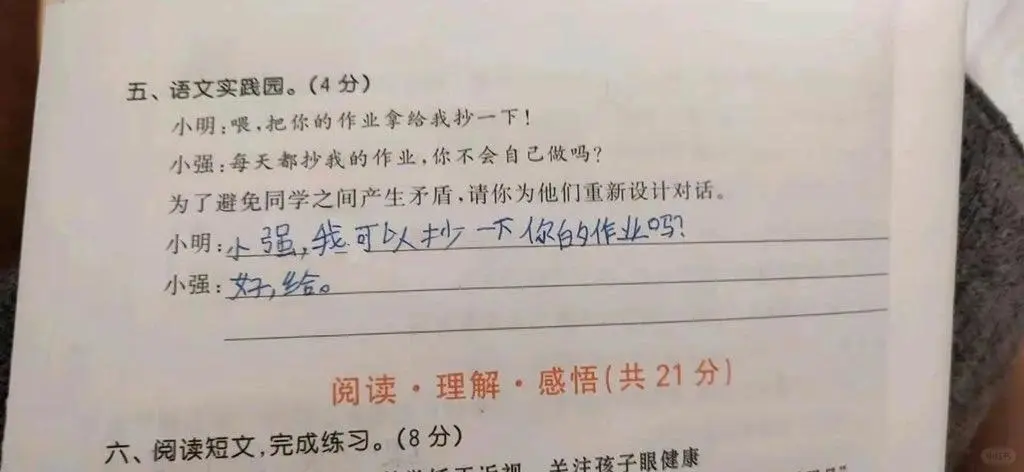 五、语文实践园。(4分)
小明:喂,把你的作业拿给我抄一下!
小强:每天都抄我的作业,你不会自己做吗?
为了避免同学之间产生矛盾,请你为他们重新设计对话。
小明:小强,我可以抄一下你的作业吗?
小强:好,给。
阅读·理解·感悟(共21分)
六、阅读短文,完成练习。(8分)
正近视 关注孩子眼健康